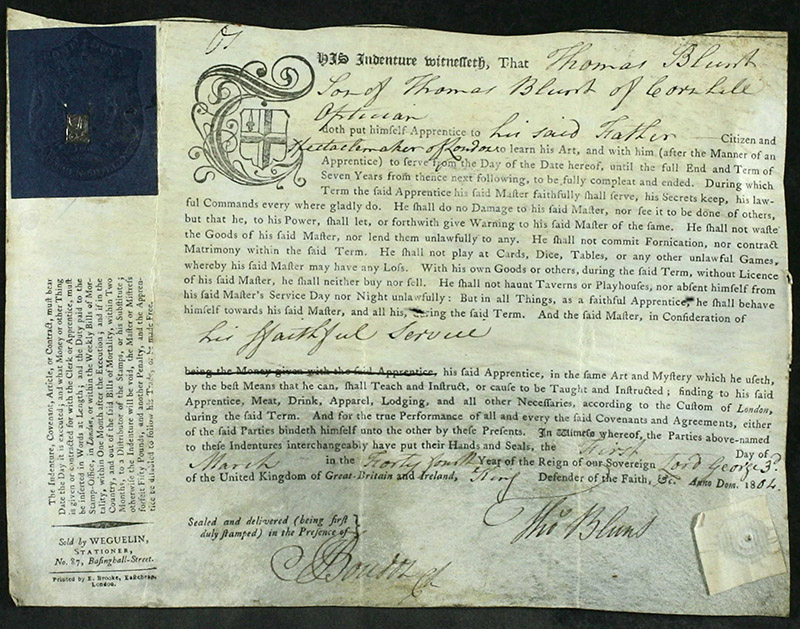 THIS Indenture witnesseth, That Thomas Blunt
Son of Thomas Blunt of Cornhill
Optician
doth put himself Apprentice to his said Father Citizen and
Spectaclemaker of London to learn his Art, and with him (after the Manner of an
Apprentice) to serve from the Day of the Date hereof, until the full End and Term of
Seven Years from thence next following, to be fully compleat and ended. During which
Term the said Apprentice his said Master faithfully shall serve, his Secrets keep, his law-
ful Commands every where gladly do. He shall do no Damage to his said Master, nor see it to be done of others,
but that he, to his Power, shall let, or forthwith give Warning to his said Master of the same. He shall not waste
the Goods of his said Master, nor lend them unlawfully to any. He shall not commit Fornication, nor contract
Matrimony within the said Term. He shall not play at Cards, Dice, Tables, or any other unlawful Games,
whereby his said Master may have any Loss. With his own Goods or others, during the said Term, without Licence
of his said Master, he shall neither buy nor sell. He shall not haunt Taverns or Playhouses, nor absent himself from
his said Master's Service Day nor Night unlawfully: But in all Things, as a faithful Apprentice, he shall behave
himself towards his said Master, and all his, during the said Term. And the said Master, in Consideration of
his ffaithful Service
being the Money given with the said Apprentice, his said Apprentice, in the same Art and Mystery which he useth,
by the best Means that he can, shall Teach and Instruct, or cause to be Taught and Instructed; finding to his said
Apprentice, Meat, Drink, Apparel, Lodging, and all other Necessaries, according to the Custom of London,
during the said Term. And for the true Performance of all and every the said Covenants and Agreements, either
of the said Parties bindeth himself unto the other by these Presents. In Witness whereof, the Parties above-named
to these Indentures interchangeably have put their Hands and Seals, the First Day of
March in the Forty fourth Year of the Reign of our Sovereign Lord George 3d.
of the United Kingdom of Great-Britain and Ireland, King Defender of the Faith, &c. Anno Dom. 1804.
Sealed and delivered (being first
duly stamped) in the Presence of
Thos Blunt
The Indenture, Covenant, Article, or Contract, must bear
Date the Day it is executed; and what Money or other Thing
is given or contracted for with the Clerk or Apprentice, must
be inserted in Words at Length; and the Duty paid to the
Stamp-Office, in London, or within the Weekly Bills of Mor-
tality, within One Month after the Execution; and if in the
Country, and out of the said Bills of Mortality, within Two
Months, to a Distributor of the Stamps, or his Substitute;
otherwise the Indenture will be void, the Master or Mistress
forfeit Fifty Pounds, and another Penalty, and the Appren-
tice be disabled to follow his Trade, or be made Free.
Sold by WEGUELIN,
STATIONER,
No. 87, Basinghall-Street.
Printed by E. Brooke, Eastcheap,
London.